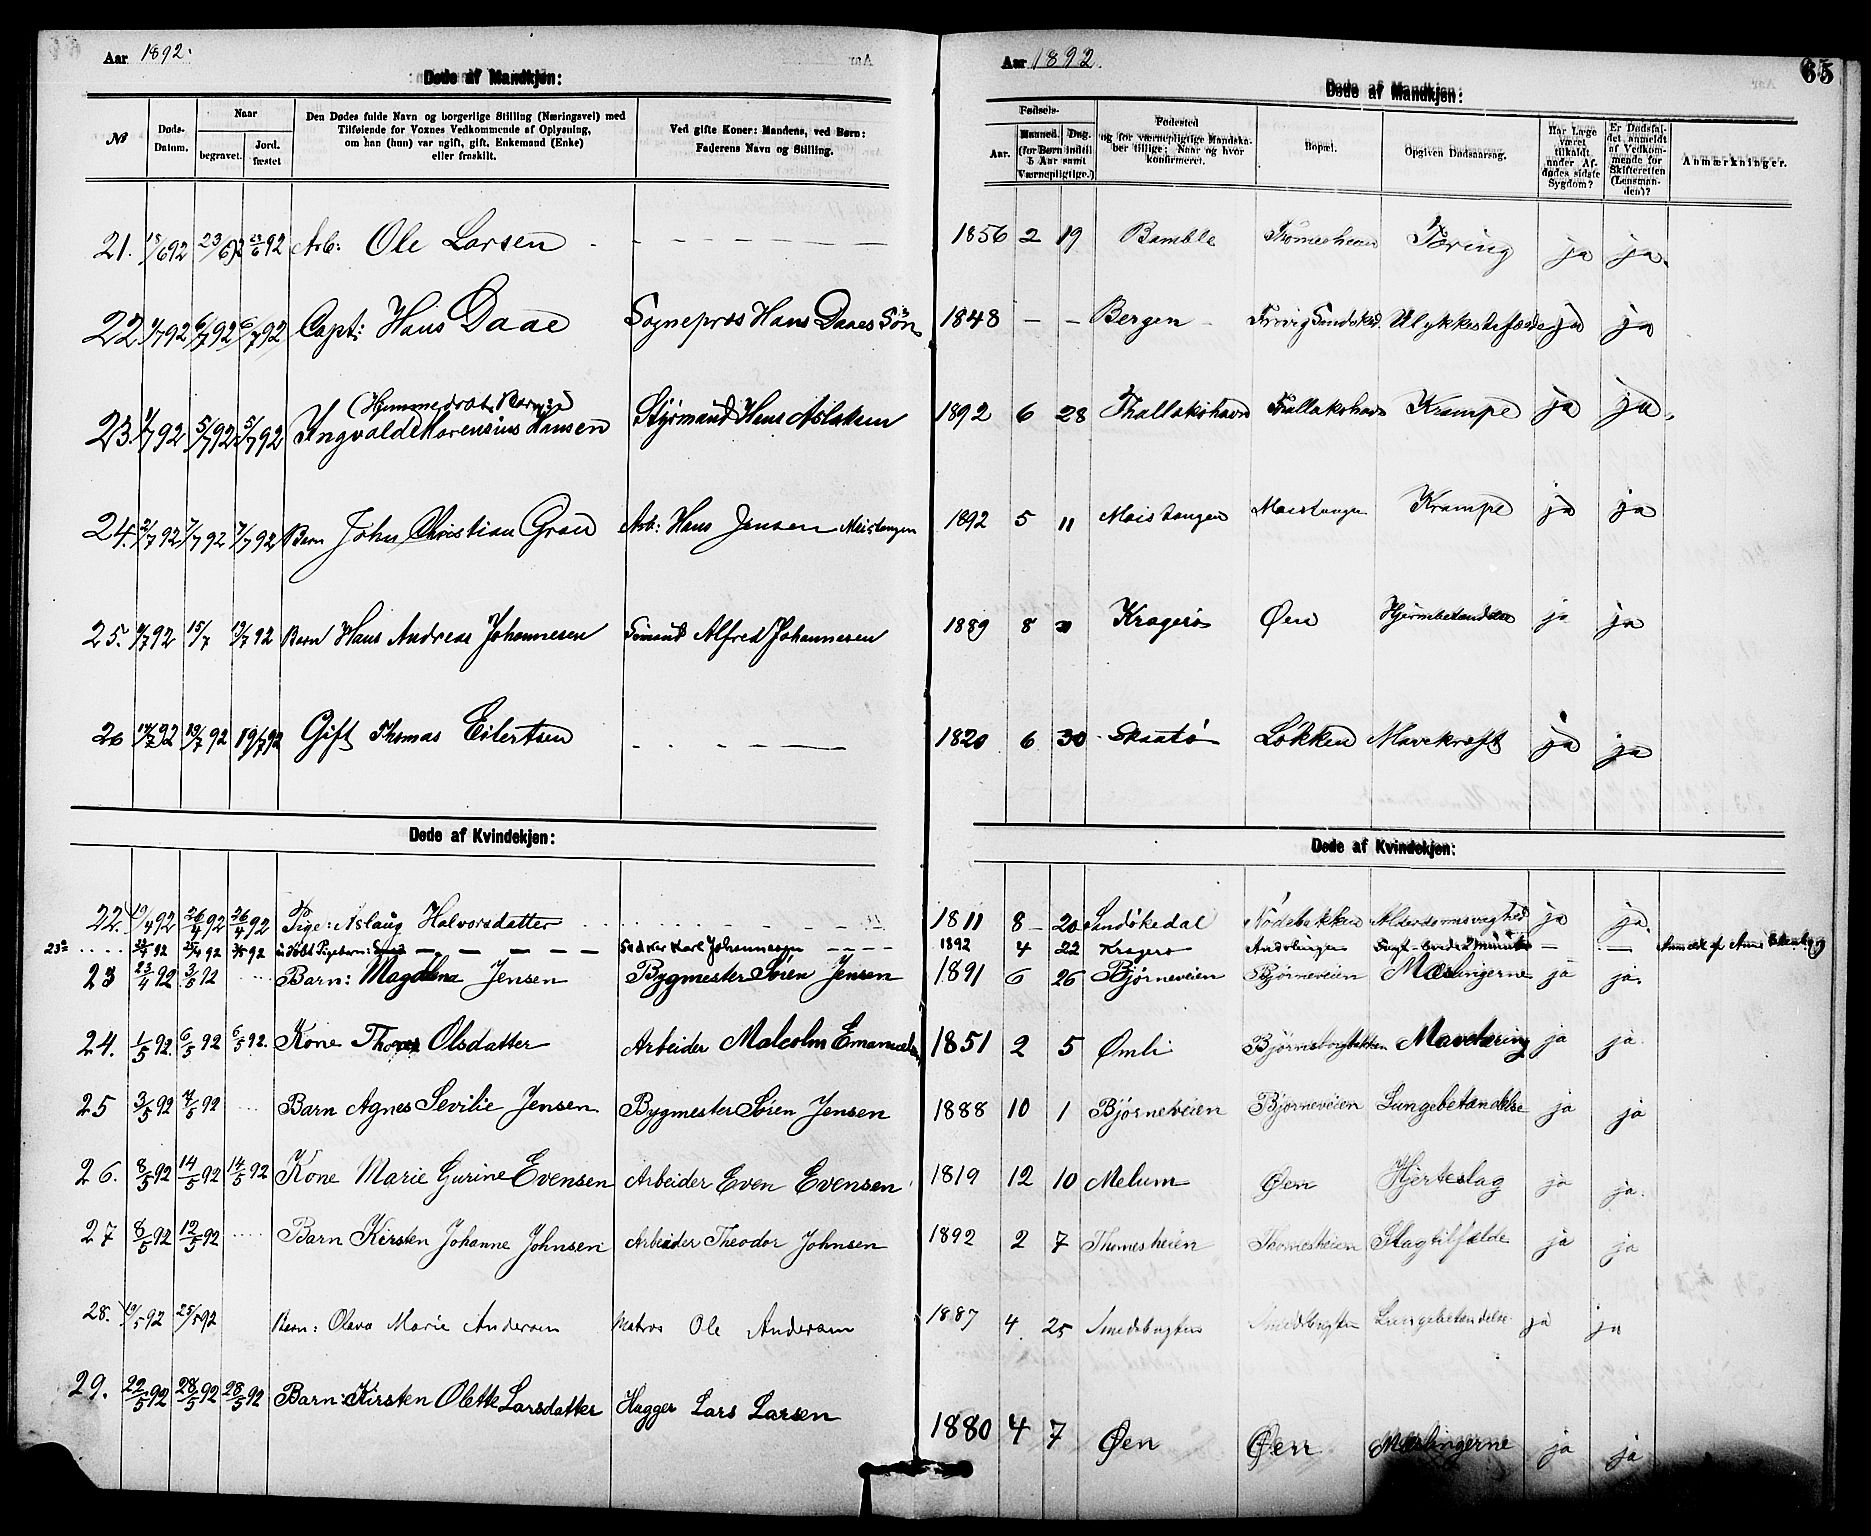 Aar 1892.
Døde af Mandkjøn:
№
Døds-Datum.
Naar
begravet.
Jord-fæstet
Den Dødes fulde Navn og borgerlige Stilling (Næringsvei) med
Tilføiende for Voxnes Vedkommende af Oplysning,
om han (hun) var ugift, gift, Enkemand (Enke)
eller fraskilt.
Ved gifte Koner: Mandens, ved Børn:
Faderens Navn og Stilling.
21. 18/6 92 23/6 92 23/6 92 Arb: Ole Larsen
22 1/7 92 6/7 92 6/7 92 Capt: Hans Daae Sogneprøs Hans Daaes Søn
(Hjemmedøbt Barn:)
23. 1/7 92 5/7 92 5/7 92 Ingvald Lorensius Hansen Styrmand Hans Aslaksen
24. 2/7 92 7/7 92 7/7 92 Barn John Christian Grau Arb: Hans Jensen Maistangen
25. 11/7 92 15/7 19/7 92 Barn Hans Andreas Johannesen Sømand Alfred Johannesen
26 14/7 92 19/7 92 19/7 92 Gift Thomas Eilertsen
Døde af Kvindekjøn:
22. 19/4 92 26/4 92 26/4 92 Pige: Aslaug Halvorsdatter
23a 92 92 92 Karl Johannessen
23 23/4 92 3/5 92 Barn: Magdlena Jensen Bygmester Søren Jensen
24. 1/5 92. 6/5 92 6/5 92. Kone Olsdatter Arbeider Malcolm Emanuelsen
25 3/5 92 7/5 92 Barn Agnes Sevilie Jensen Bygmester Søren Jensen
26. 8/5 92 14/5 92 14/5 92 Kone Marie Gurine Evensen Arbeider Even Evensen
27 8/5 92 12/5 92 Barn Kirsten Johanne Johnsen Arbeider Theodor Johnsen
28. 19/5 92 25/5 92 Barn: Olava Marie Andersen Matros Ole Andersen
29. 22/5 92 28/5 92 28/5 92 Barn: Kirsten Olette Larsdatter Hugger Lars Larsen
Aar 1892.
65
Døde af Mandkjøn:
Fødsels-
Aar.
Maaned. Dag.
(for Børn indtil
5 Aar samt
Værnepligtige.)
Fødested
og for værnepligtige Mandska-
ber tillige: Naar og hvor
konfirmeret.
Bopæl.
Opgiven Dødsaarsag.
Har Læge
været
tilkaldt
under Af-
dødes sidste
Sygdom?
Er Dødsfal-
det anmeldt
af Vedkom-
mende for
Skifteretten
(Lensman-
den)?
Anmærkninger.
1856 2 19 Bamble Thomesheien Tæring ja ja.
1848 – – Bergen Sandøked. Ulykkestilfælde ja ja
1892 6 28 Thallakshavn Thallakshavn Krampe ja ja.
1892 5 11 Maistangen Maistangen Krampe ja ja
1889 8 Kragerø Øen Hjernebetændelse ja ja
1820 6 30 Skaatø Løkken Mavekræft ja ja
Døde af Kvindekjøn:
1811 8 20 Sandøkedal Nødebakken Alderdomssvaghed ja ja.
1892 4 22 Kragerø — —
1891 6 26 Bjørneveien Bjørneveien Mæslingerne ja ja.
1851 2 5 Ømli Bjørnsborgbakken Mavetæring ja ja
1888 10 1 Bjørneveien Bjørneveien Lungebetændelse ja ja
1819 12 10 Melum Øen Hjerteslag ja ja.
1892 2 7 Thomesheien Thomesheien Slagtilfælde ja ja
1887 4 25 Smedsbugten Smedsbugten Lungebetændelse ja ja
1880 4 7 Øen Øen Mæslingerne ja ja